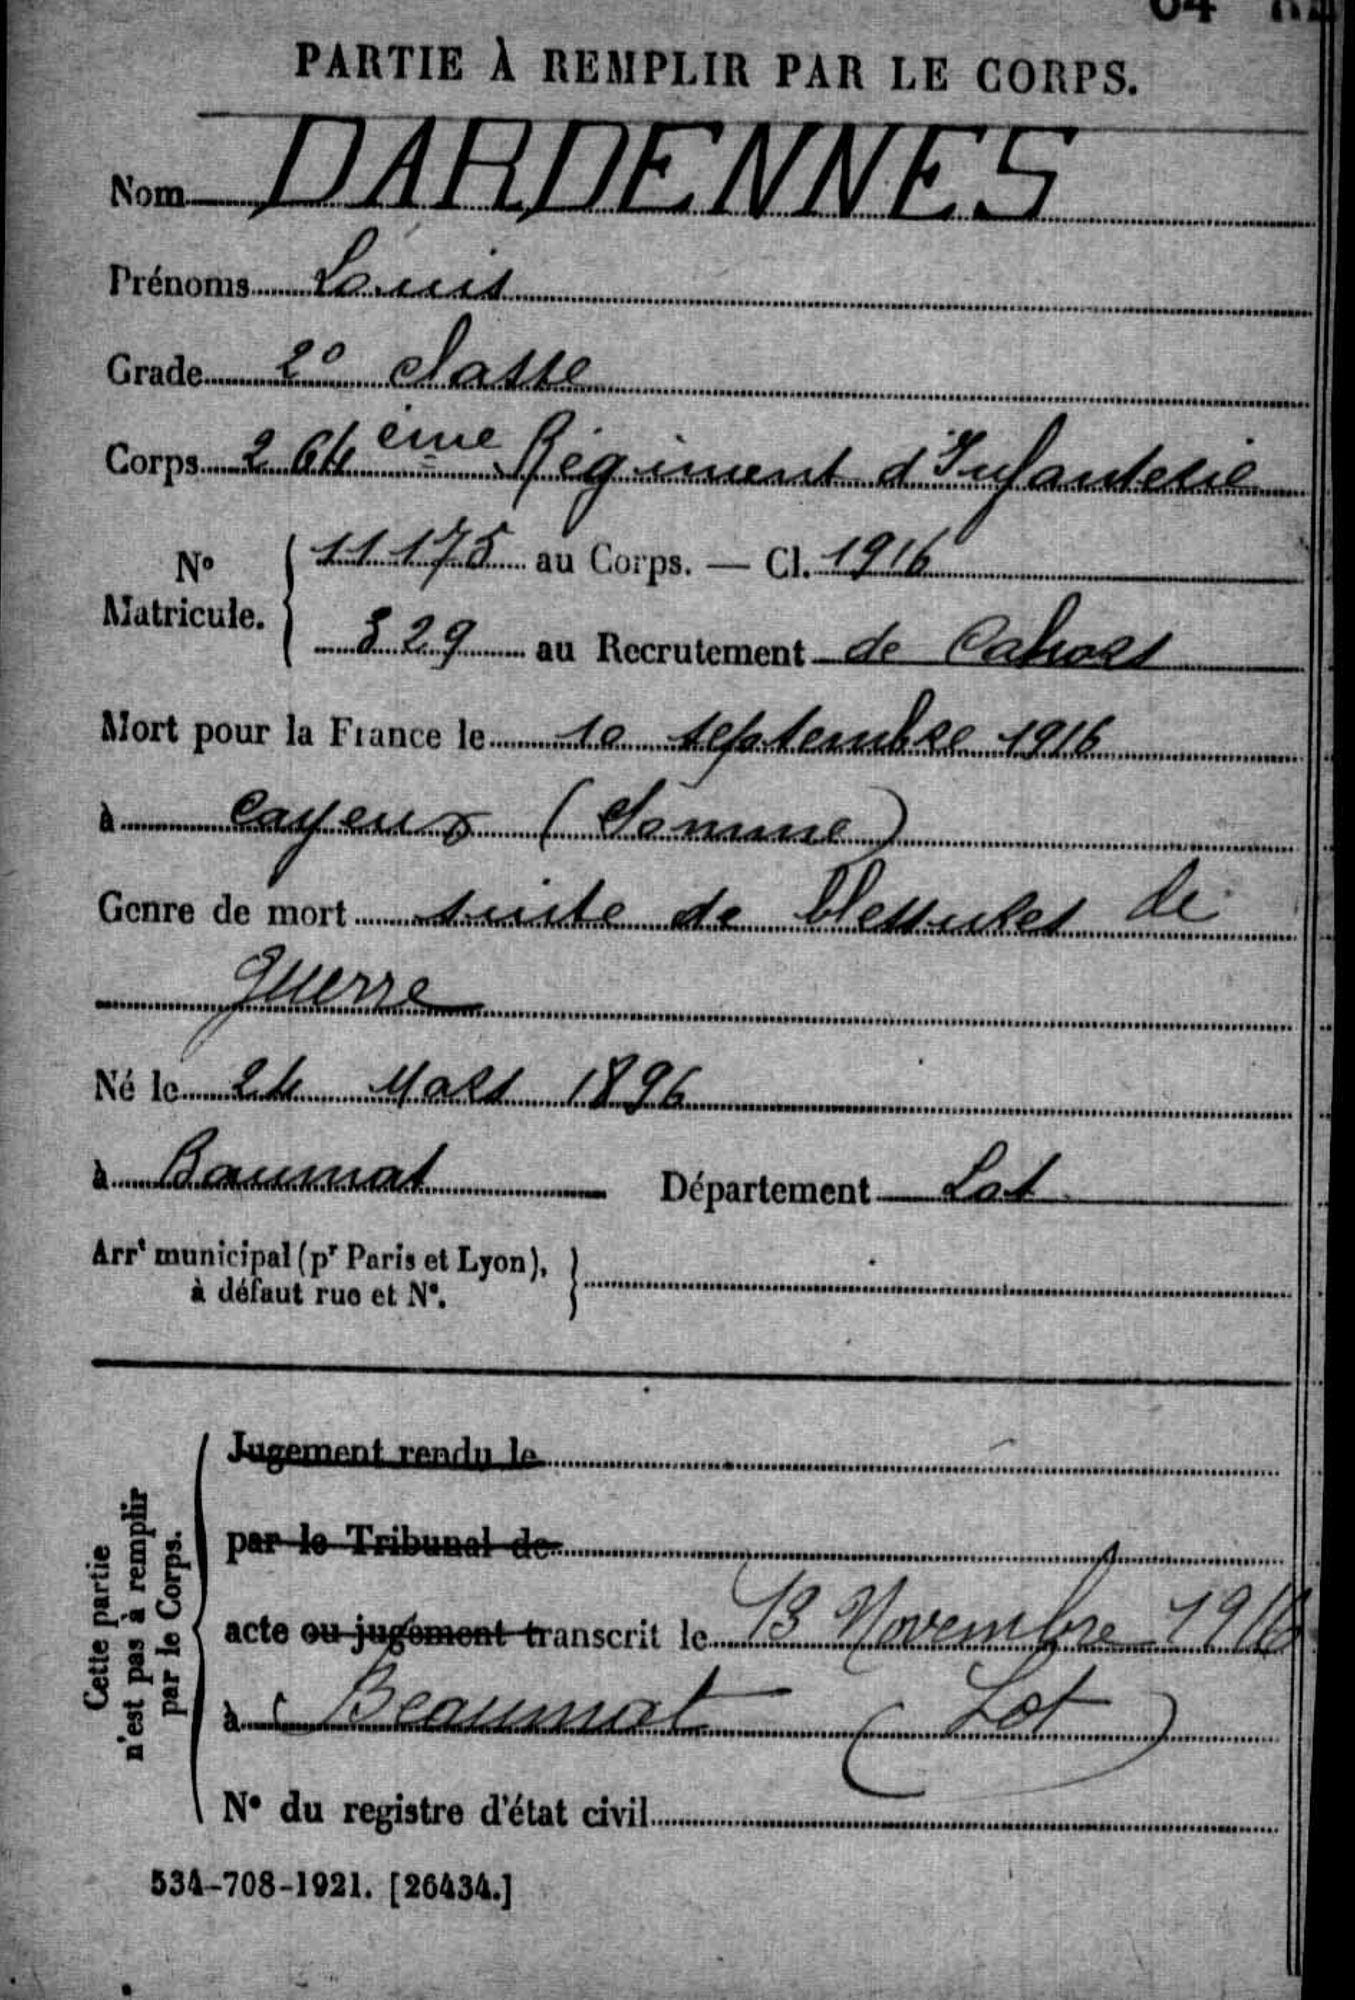 PARTIE À REMPLIR PAR LE CORPS.
Nom DARDENNES
Prénoms Louis
Grade 2e classe
Corps 264ème Régiment d'Infanterie
No Matricule. { 11175 au Corps. — Cl. 1916
329 au Recrutement de Cahors
Mort pour la France le 10 septembre 1916
à Cayeux (Somme)
Genre de mort suite de blessures de
guerre
Né le 24 Mars 1896
à Baumat Département Lot
Arrt municipal (pr Paris et Lyon),
à défaut rue et No.
Cette partie
n'est pas à remplir
par le Corps.
Jugement rendu le
par le Tribunal de
acte ou jugement transcrit le 13 Novembre 1916
à Beaumat (Lot)
No du registre d'état civil
534-708-1921. [26434.]